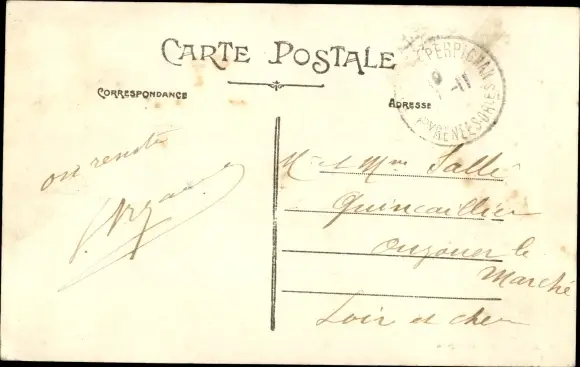 CARTE POSTALE
CORRESPONDANCE
ADRESSE
PERPIGNAN
PYRENEES-ORLES
on rentre
M et Mme Sallé
Quincaillier
Ouzouer le
Marché
Loir et cher